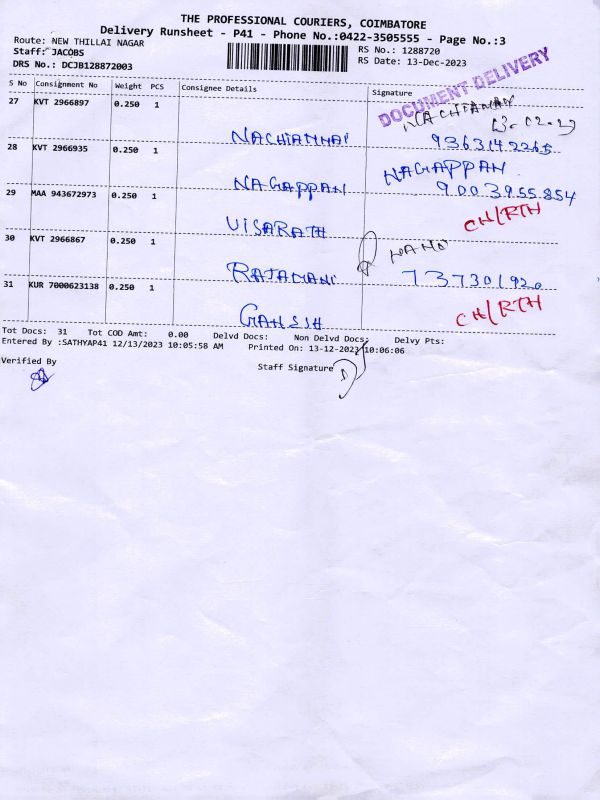 THE PROFESSIONAL COURIERS, COIMBATORE
Delivery Runsheet - P41 - Phone No.:0422-3505555 - Page No.:3
Route: NEW THILLAI NAGAR RS No.: 1288720
Staff: JACOBS RS Date: 13-Dec-2023
DRS No.: DCJB128872003
DOCUMENT DELIVERY
S No Consignment No Weight PCS Consignee Details Signature
27 KVT 2966897 0.250 1
NACHIAMMAI 9363142265
28 KVT 2966935 0.250 1 NAGAPPAN
NAGAPPAN 9003955854
29 MAA 943672973 0.250 1 CH/RTH
VISARATH
30 KVT 2966867 0.250 1
RAJAMANI 737301920
31 KUR 7000623138 0.250 1 CH/RTH
GANESH
Tot Docs: 31 Tot COD Amt: 0.00 Delvd Docs: Non Delvd Docs: Delvy Pts:
Entered By :SATHYAP41 12/13/2023 10:05:58 AM Printed On: 13-12-2023 10:06:06
Verified By Staff Signature